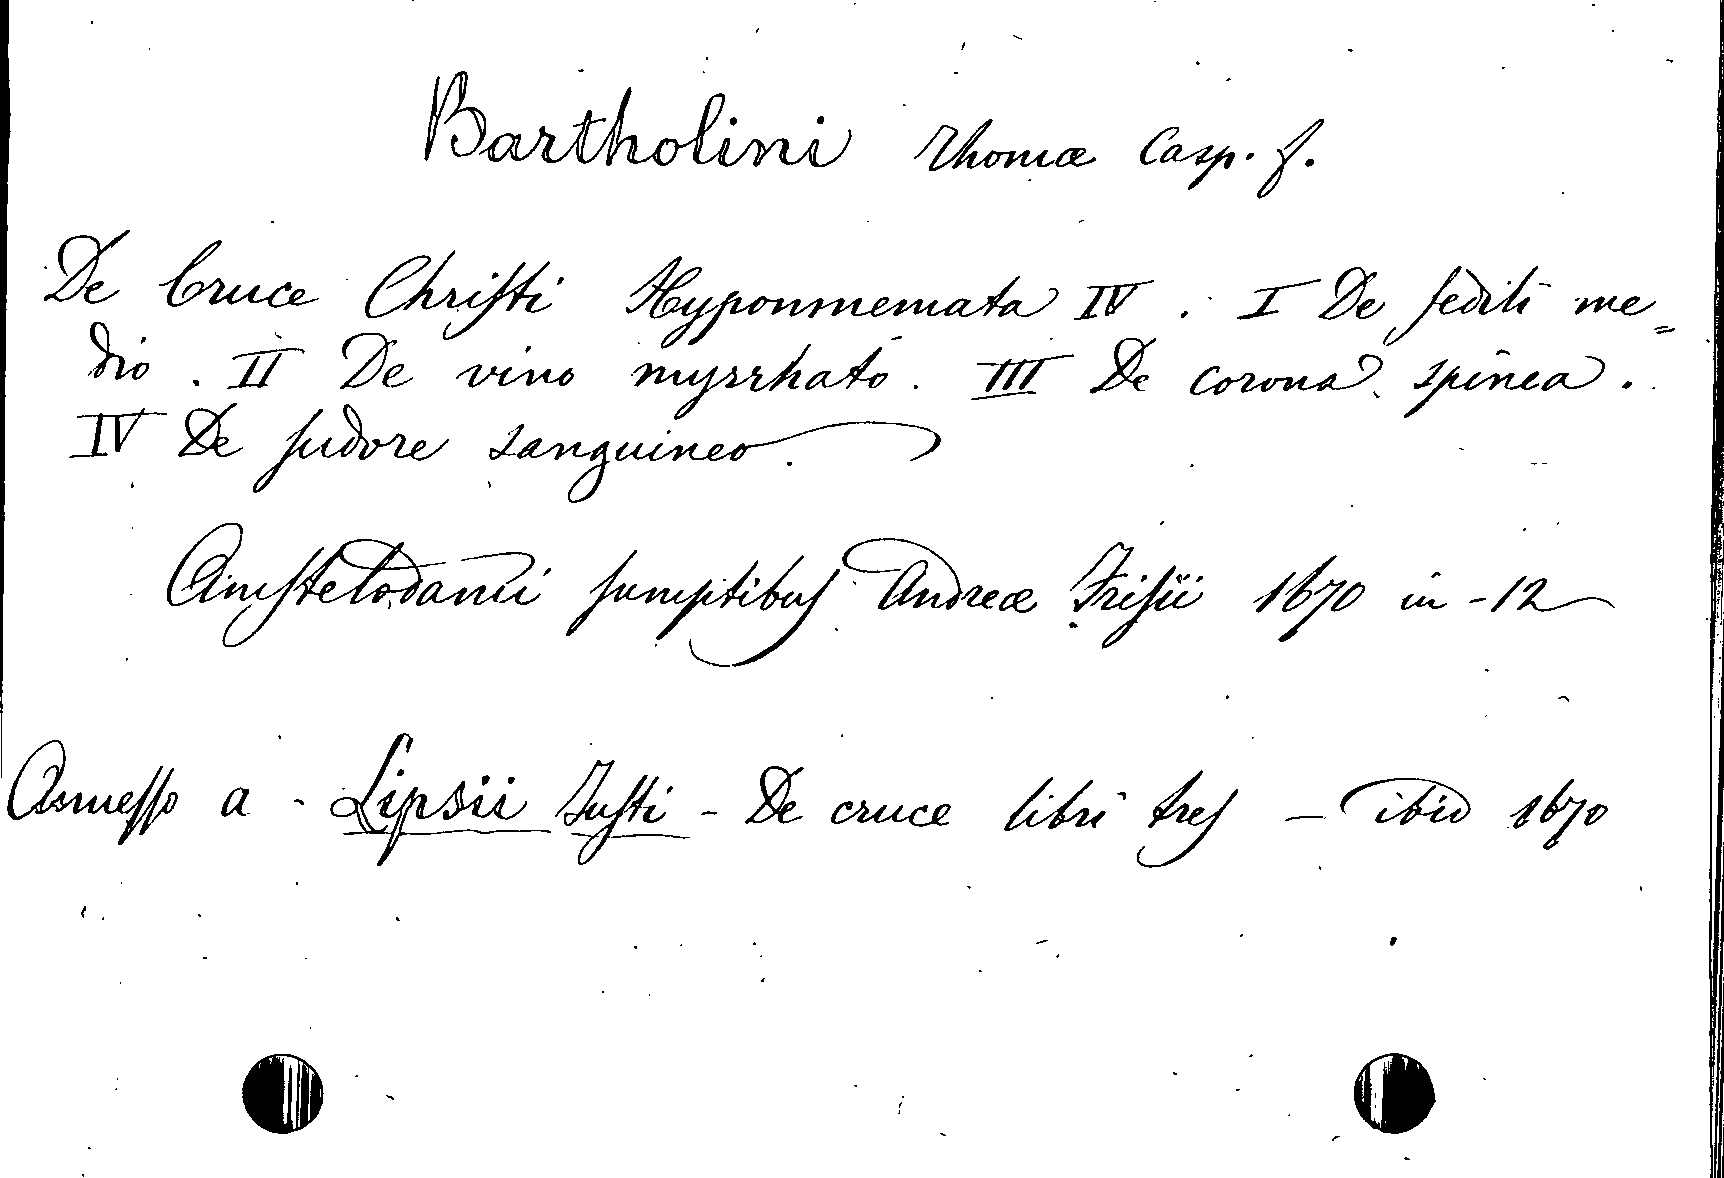 Bartholini Thomæ Casp. f.
De Cruce Chriſti Hyponmemata IV . I De ſedili me=
dio . II De vino myrrhato . III De corona spinea .
IV De ſudore sanguineo .
Amſtelodami ſumptibuſ Andreæ Friſii 1670 in -12
Annesſo a - Lipsii Juſti - De cruce libri treſ - ibid 1670